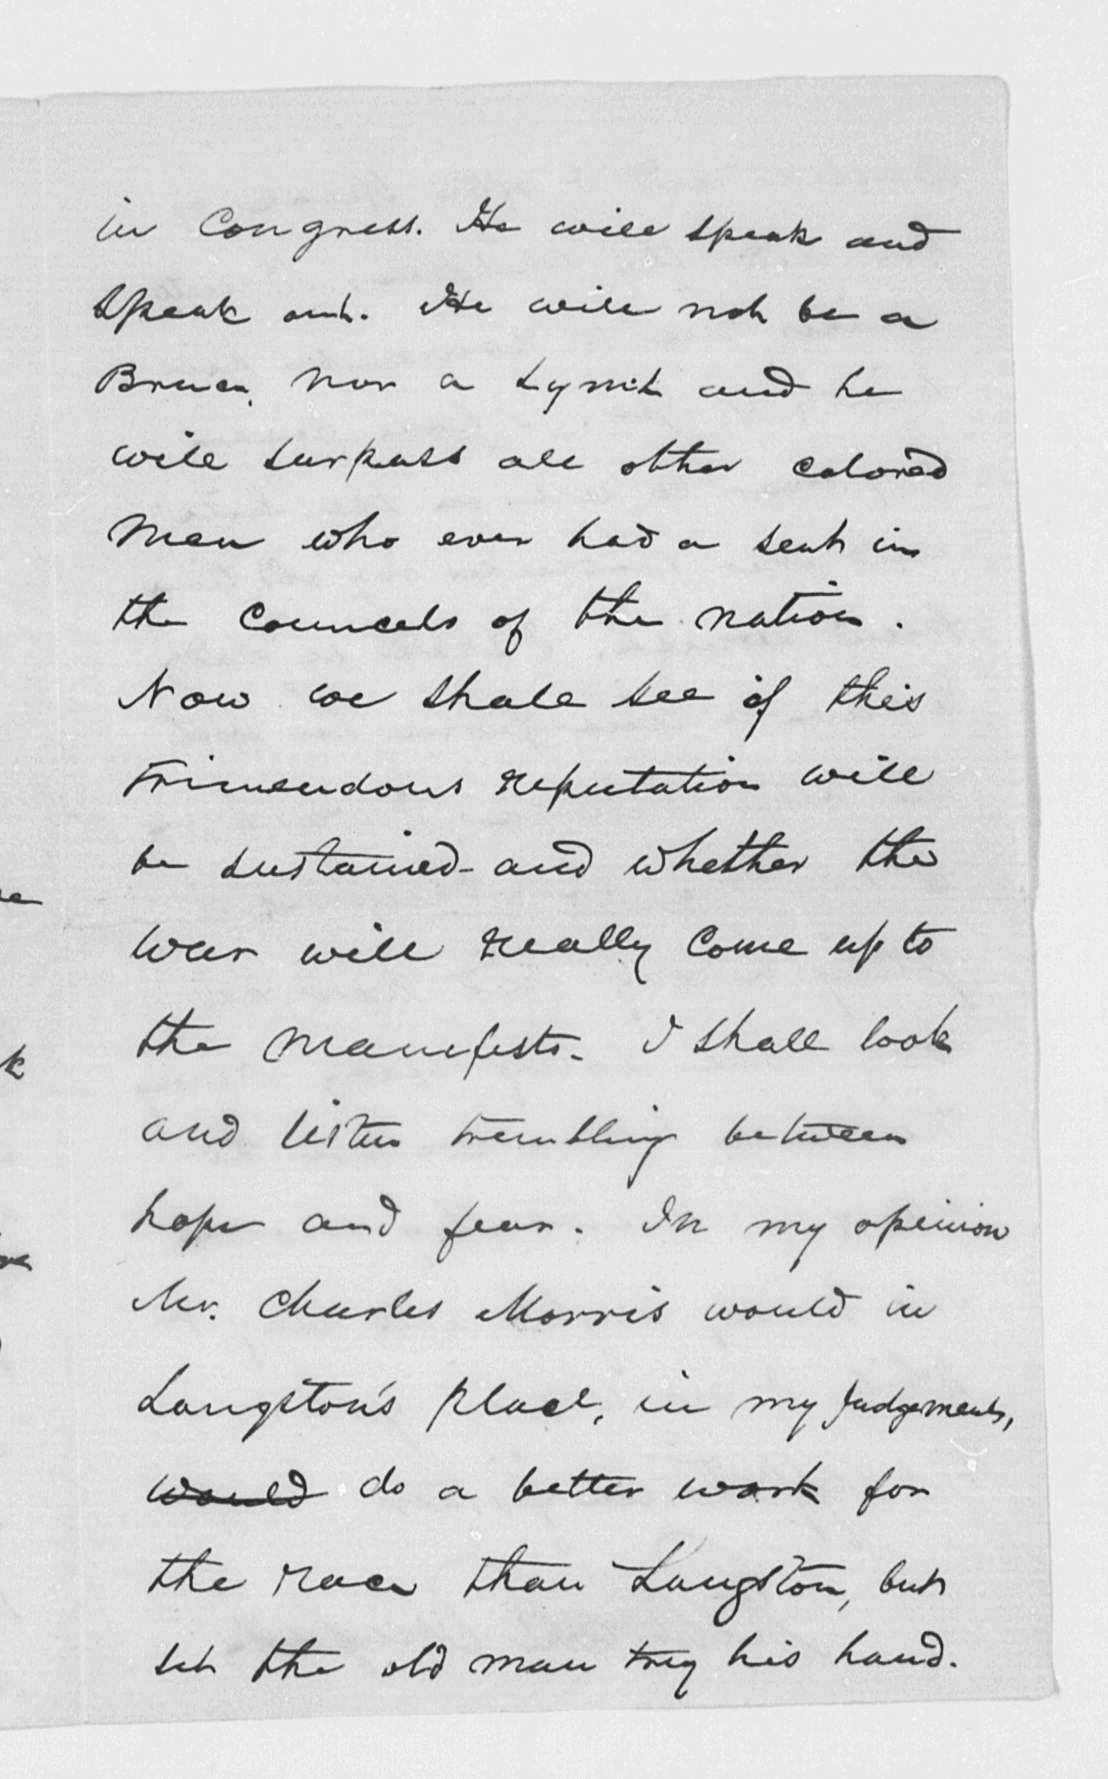 in Congress. He will speak and
speak out. He will not be a
Bruce, nor a Lynch and he
will surpass all other colored
men who ever had a seat in
the councels of the nation.
Now we shall see if this
trimendous reputation will
be sustained - and whether the
war will really come up to
the manifesto. I shall look
and listen trembling between
hope and fear. In my opinion
Mr. Charles Morris would in
Langston's place, in my judgement,
would do a better work for
the race than Langston, but
let the old man try his hand.